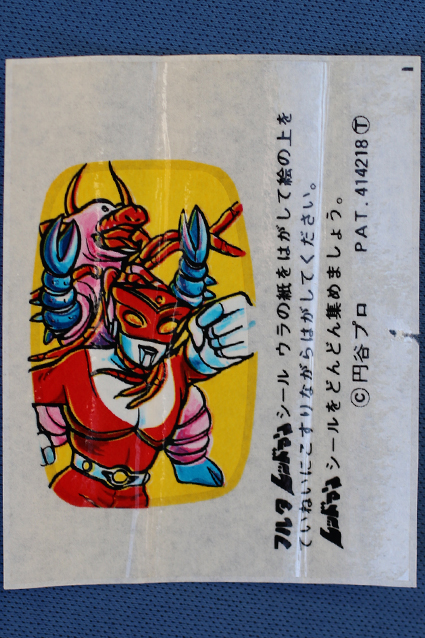 フルタ レッドマンシール ウラの紙をはがして絵の上を
ていねいにこすりながらはがしてください。
レッドマンシールをどんどん集めましょう。
©円谷プロ PAT. 414218 Ⓣ